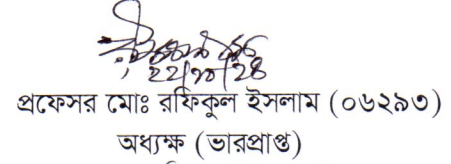 ২২/১০/২৪
প্রফেসর মোঃ রফিকুল ইসলাম (০৬২৯৩)
অধ্যক্ষ (ভারপ্রাপ্ত)